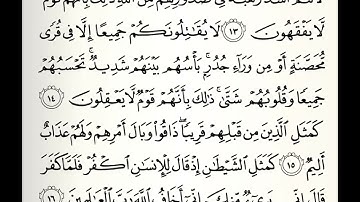 لَأَنتُمْ أَشَدُّ رَهْبَةً فِى صُدُورِهِم مِّنَ ٱللَّهِ ذَٰلِكَ بِأَنَّهُمْ قَوْمٌ
لَّا يَفْقَهُونَ ١٣ لَا يُقَٰتِلُونَكُمْ جَمِيعًا إِلَّا فِى قُرًى
مُّحَصَّنَةٍ أَوْ مِن وَرَآءِ جُدُرٍۭ بَأْسُهُم بَيْنَهُمْ شَدِيدٌ تَحْسَبُهُمْ
جَمِيعًا وَقُلُوبُهُمْ شَتَّىٰ ذَٰلِكَ بِأَنَّهُمْ قَوْمٌ لَّا يَعْقِلُونَ ١٤
كَمَثَلِ ٱلَّذِينَ مِن قَبْلِهِمْ قَرِيبًا ذَاقُوا۟ وَبَالَ أَمْرِهِمْ وَلَهُمْ عَذَابٌ
أَلِيمٌ ١٥ كَمَثَلِ ٱلشَّيْطَٰنِ إِذْ قَالَ لِلْإِنسَٰنِ ٱكْفُرْ فَلَمَّا كَفَرَ
قَالَ إِنِّى بَرِىٓءٌ مِّنكَ إِنِّىٓ أَخَافُ ٱللَّهَ رَبَّ ٱلْعَٰلَمِينَ ١٦